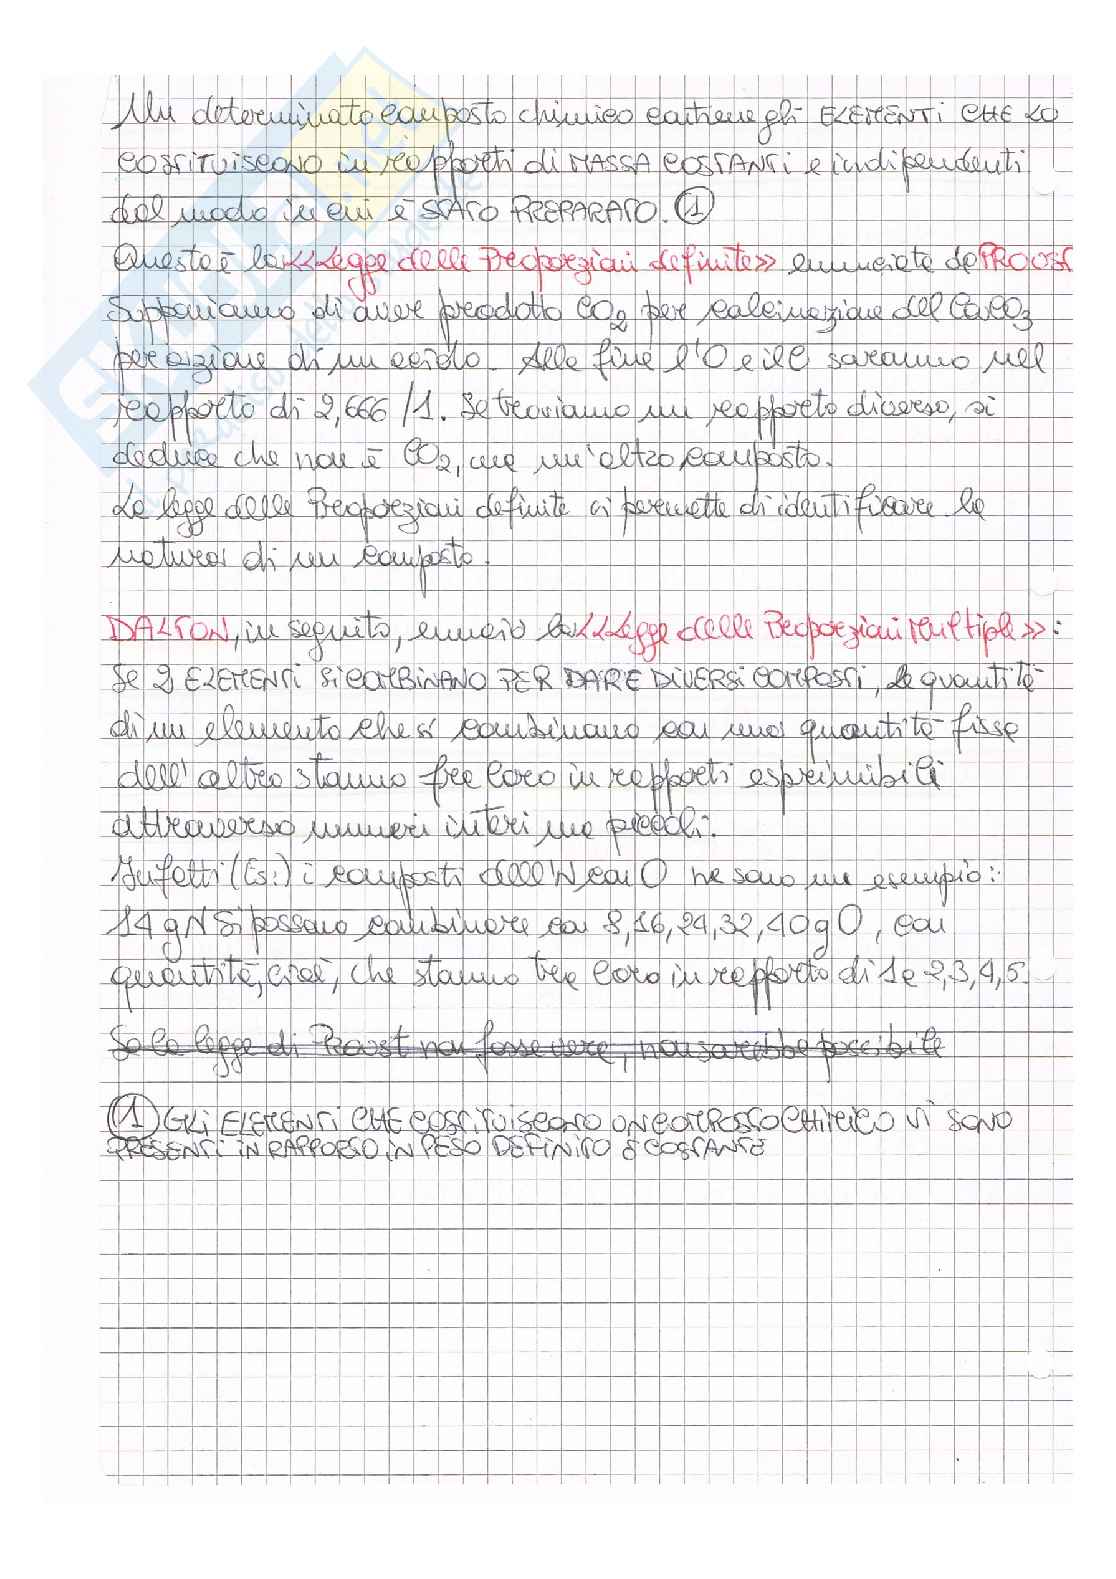 Un determinato composto chimico contiene gli ELEMENTI CHE LO
COSTITUISCONO in rapporti di MASSA COSTANTI e indipendenti
dal modo in cui è STATO PREPARATO. ①
Questa è la <<Legge delle Proporzioni definite>> enunciata da PROUST
Supponiamo di aver prodotto CO2 per calcinazione del CaCO3
per azione di un acido. Alla fine l'O e il C saranno nel
rapporto di 2,666/1. Se troviamo un rapporto diverso, si
deduce che non è CO2, ma un'altro composto.
La legge delle Proporzioni definite ci permette di identificare la
natura di un composto.
DALTON, in seguito, enunciò la <<Legge delle Proporzioni Multiple>>:
Se 2 ELEMENTI SI COMBINANO PER DARE DIVERSI COMPOSTI, le quantità
di un elemento che si combinano con una quantità fissa
dell'altro stanno fra loro in rapporti esprimibili
attraverso numeri interi ma piccoli.
Infatti (Es:) i composti dell'N con O ne sono un esempio:
14 g N si possono combinare con 8, 16, 24, 32, 40 g O, con
quantità, cioè, che stanno tra loro in rapporto di 1 a 2, 3, 4, 5.
Se la legge di Proust non fosse vera, non sarebbe possibile
① GLI ELEMENTI CHE COSTITUISCONO UN COMPOSTO CHIMICO VI SONO
PRESENTI IN RAPPORTO IN PESO DEFINITO E COSTANTE